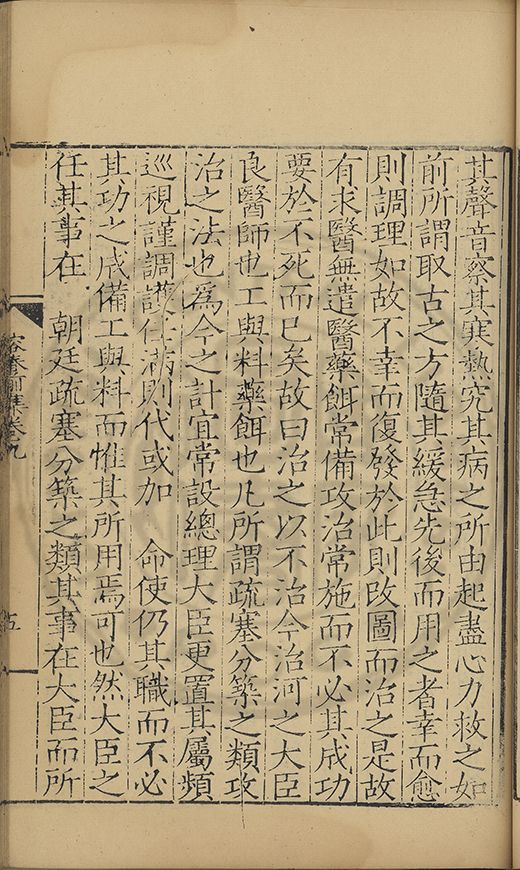 其聲音察其寒熱究其病之所由起盡心力救之如
前所謂取古之方隨其緩急先後而用之者幸而愈
則調理如故不幸而復發於此則改圖而治之是故
有求醫無遣醫藥餌常備攻治常施而不必其成功
要於不死而已矣故曰治之以不治今治河之大臣
良醫師也工與料藥餌也凡所謂疏塞分築之類攻
治之法也爲今之計宜常設總理大臣更置其屬頻
巡視謹調護任滿則代或加　命使仍其職而不必
其功之成備工與料而惟其所用焉可也然大臣之
任其事在　朝廷疏塞分築之類其事在大臣而所
前集卷九
五